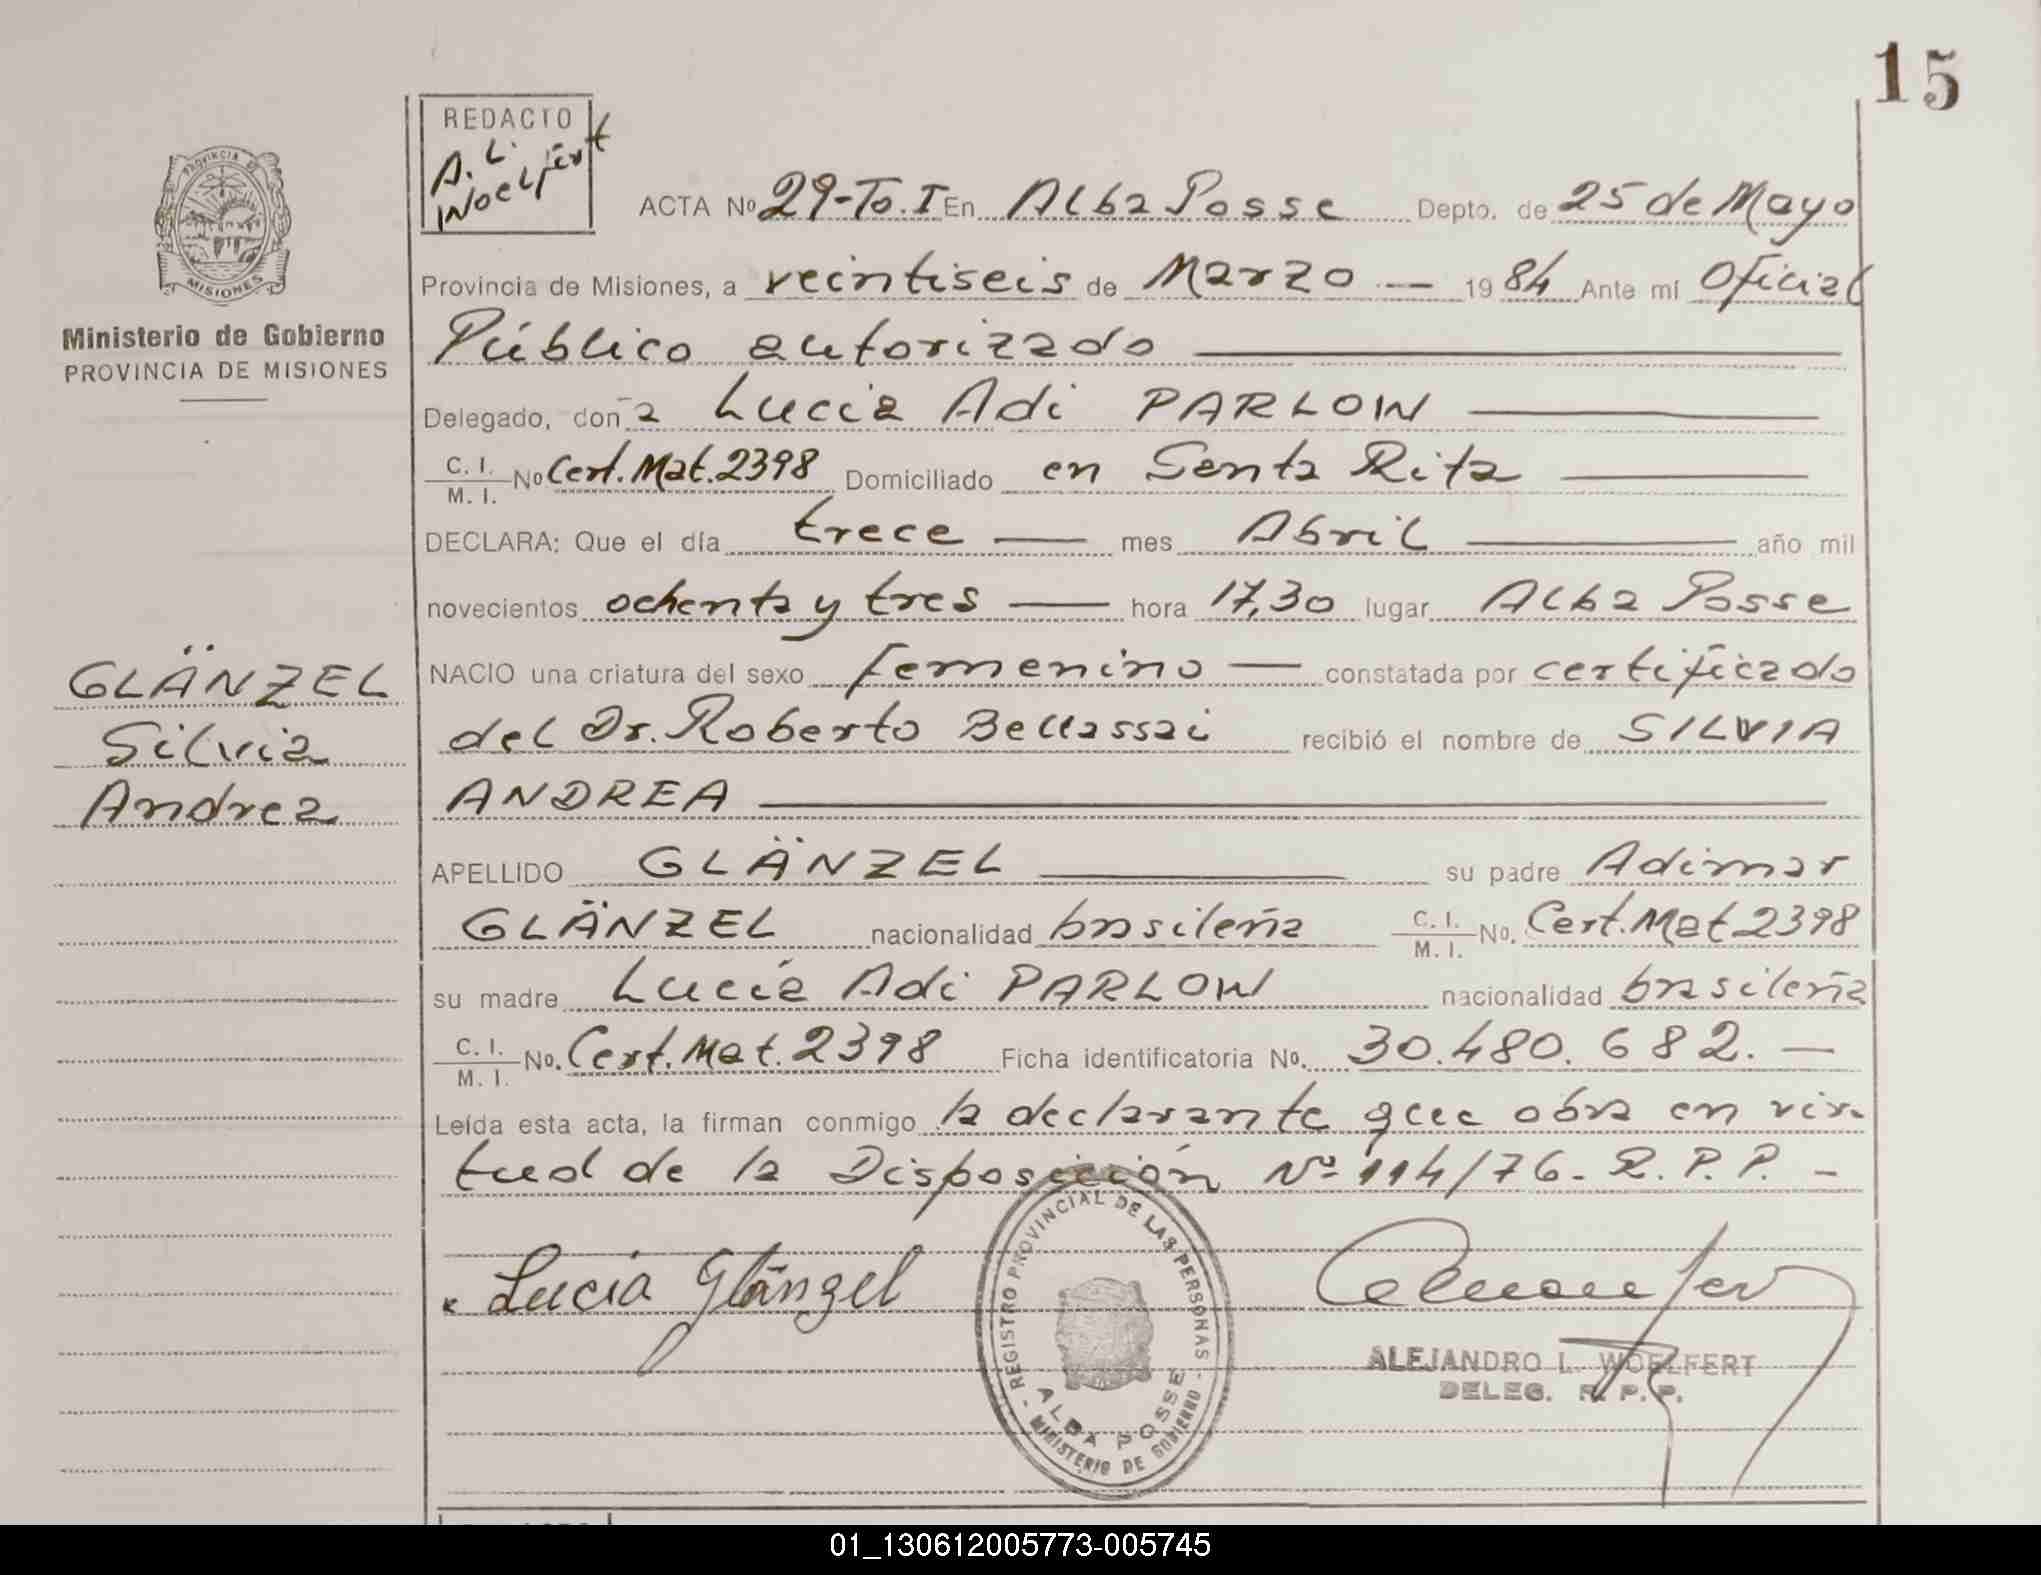 15
REDACTO
A. L.
Woelfert
PROVINCIA DE
MISIONES
Ministerio de Gobierno
PROVINCIA DE MISIONES
GLÄNZEL
Silvia
Andrea
ACTA Nº 29-To.I En Alba Posse Depto. de 25 de Mayo
Provincia de Misiones, a veintiseis de Marzo — 19 84 Ante mí Oficial
Público autorizado
Delegado, don a Lucia Adi PARLOW
C. I.
M. I. Nº Cert. Mat. 2398 Domiciliado en Santa Rita
DECLARA: Que el día trece — mes Abril — año mil
novecientos ochenta y tres — hora 17,30 lugar Alba Posse
NACIO una criatura del sexo femenino — constatada por certificado
del Dr. Roberto Bellassai recibió el nombre de SILVIA
ANDREA
APELLIDO GLÄNZEL su padre Adimar
GLÄNZEL nacionalidad brasileña C. I.
M. I. No. Cert. Mat 2398
su madre Lucía Adi PARLOW nacionalidad brasileña
C. I.
M. I. No. Cert. Mat. 2398 Ficha identificatoria Nº. 30.480.682. —
Leída esta acta, la firman conmigo la declarante que obra en vir-
tud de la Disposición Nº 114/76- R. P. P. -
Lucía Glänzel
REGISTRO PROVINCIAL DE LAS PERSONAS
ALBA POSSE
- MINISTERIO DE GOBIERNO -
ALEJANDRO L. WOELFERT
DELEG. R. P. P.
01_130612005773-005745